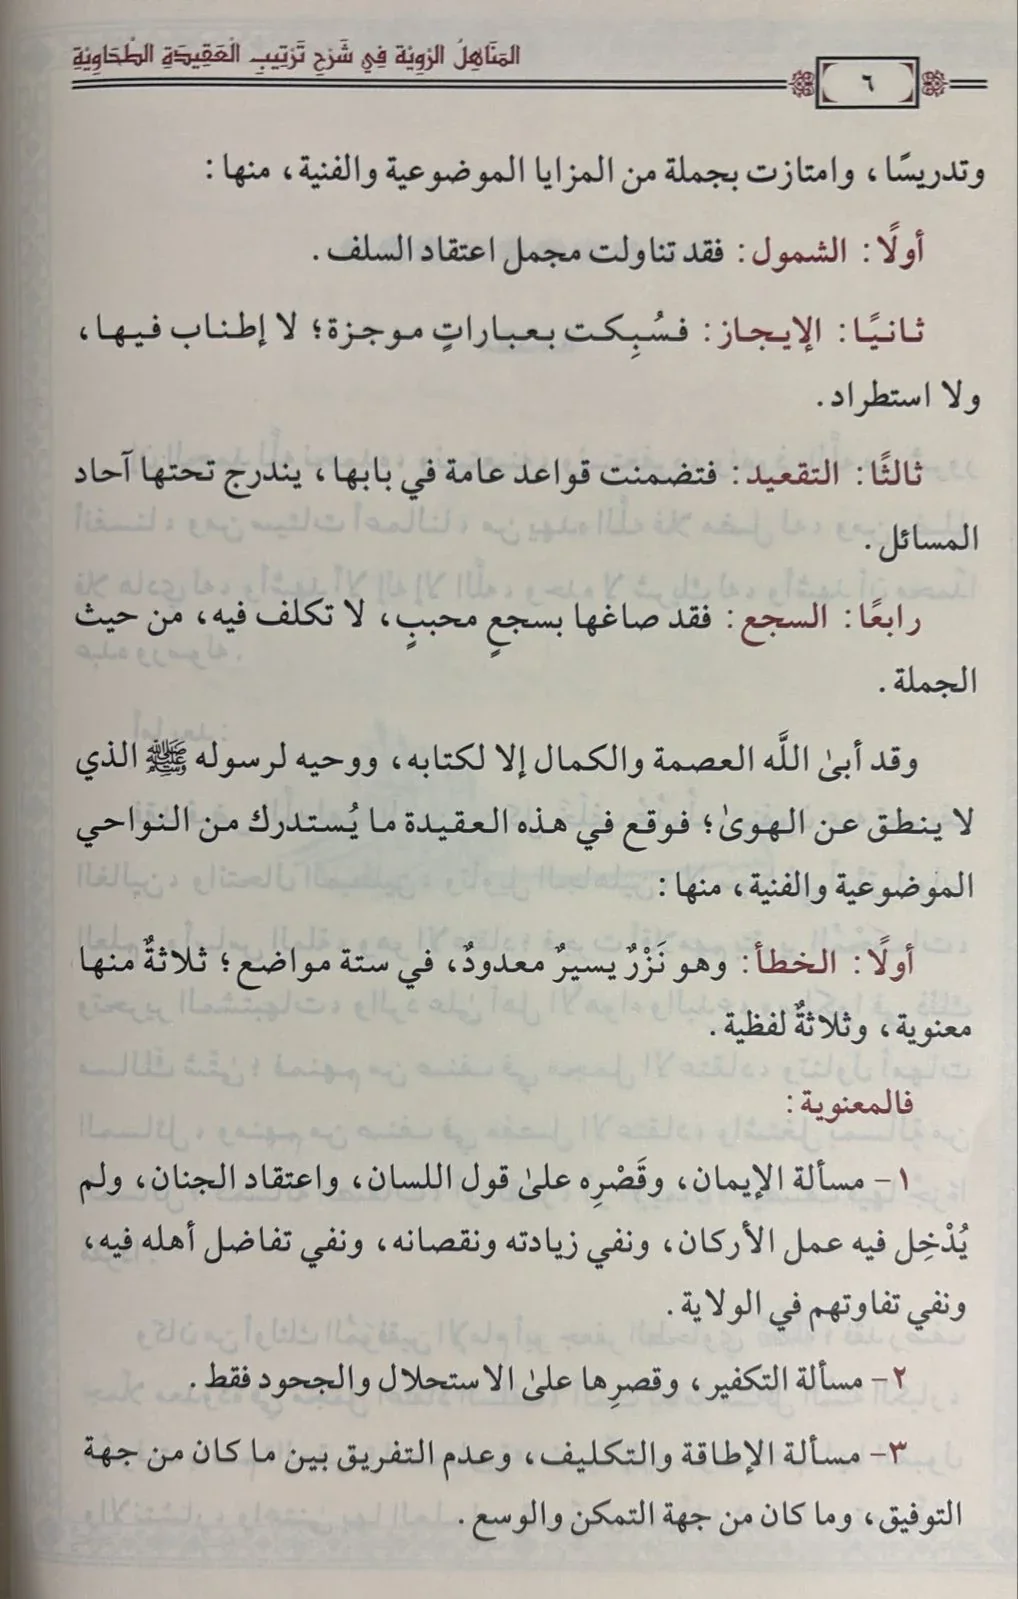 المَنَاهِلُ الرَّوِيَّة فِي شَرْحِ تَرْتِيبِ الْعَقِيدَةِ الطَّحَاوِيَّةِ
٦
وتدريسًا، وامتازت بجملة من المزايا الموضوعية والفنية، منها:
أولًا: الشمول: فقد تناولت مجمل اعتقاد السلف.
ثانيًا: الإيجاز: فسُبِكت بعباراتٍ موجزة؛ لا إطناب فيها،
ولا استطراد.
ثالثًا: التقعيد: فتضمنت قواعد عامة في بابها، يندرج تحتها آحاد
المسائل.
رابعًا: السجع: فقد صاغها بسجعٍ محببٍ، لا تكلف فيه، من حيث
الجملة.
وقد أبىٰ اللَّه العصمة والكمال إلا لكتابه، ووحيه لرسوله ﷺ الذي
لا ينطق عن الهوىٰ؛ فوقع في هذه العقيدة ما يُستدرك من النواحي
الموضوعية والفنية، منها:
أولًا: الخطأ: وهو نَزْرٌ يسيرٌ معدودٌ، في ستة مواضع؛ ثلاثةٌ منها
معنوية، وثلاثةٌ لفظية.
فالمعنوية:
١- مسألة الإيمان، وقَصْرِه علىٰ قول اللسان، واعتقاد الجنان، ولم
يُدْخِل فيه عمل الأركان، ونفي زيادته ونقصانه، ونفي تفاضل أهله فيه،
ونفي تفاوتهم في الولاية.
٢- مسألة التكفير، وقصرِها علىٰ الاستحلال والجحود فقط.
٣- مسألة الإطاقة والتكليف، وعدم التفريق بين ما كان من جهة
التوفيق، وما كان من جهة التمكن والوسع.